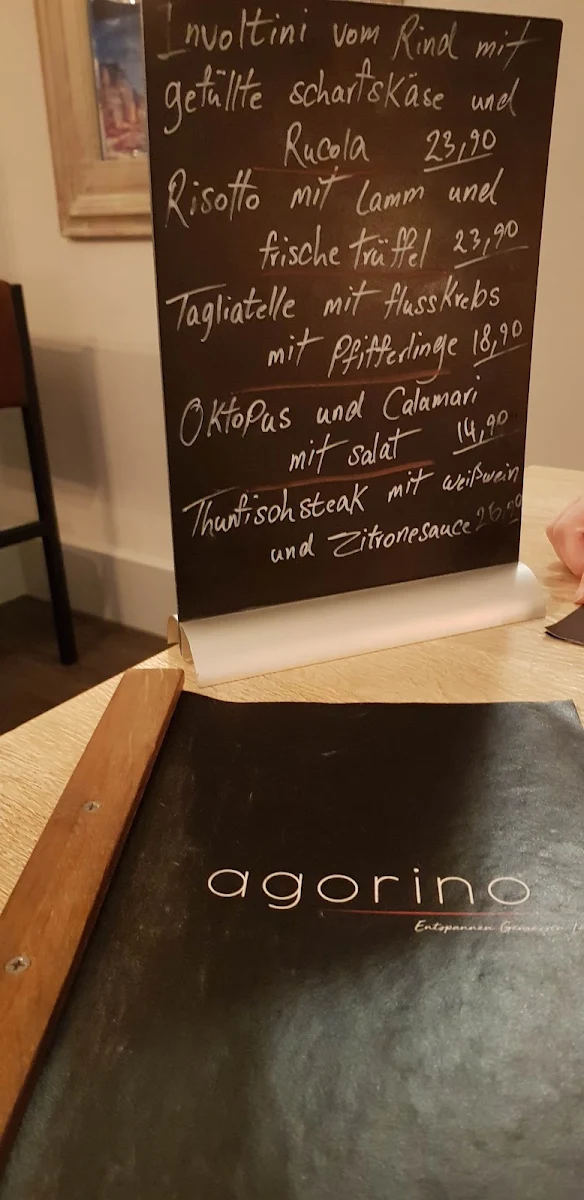 Involtini vom Rind mit
gefüllte schaftskäse und
Rucola 23,90
Risotto mit Lamm und
frische trüffel 23,90
Tagliatelle mit flusskrebs
mit Pfifferlinge 18,90
Oktopus und Calamari
mit salat 14,90
Thunfischsteak mit weißwein
und Zitronesauce
agorino
Entspannen Geniessen